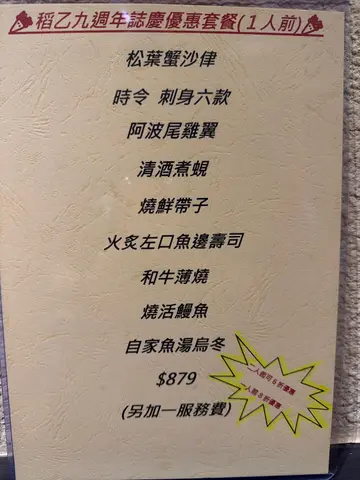 稻乙九週年誌慶優惠套餐(１人前)
松葉蟹沙律
時令 刺身六款
阿波尾雞翼
清酒煮蜆
燒鮮帶子
火炙左口魚邊壽司
和牛薄燒
燒活鰻魚
自家魚湯烏冬
$879
(另加一服務費)
二人前可６折優惠
一人前８折優惠